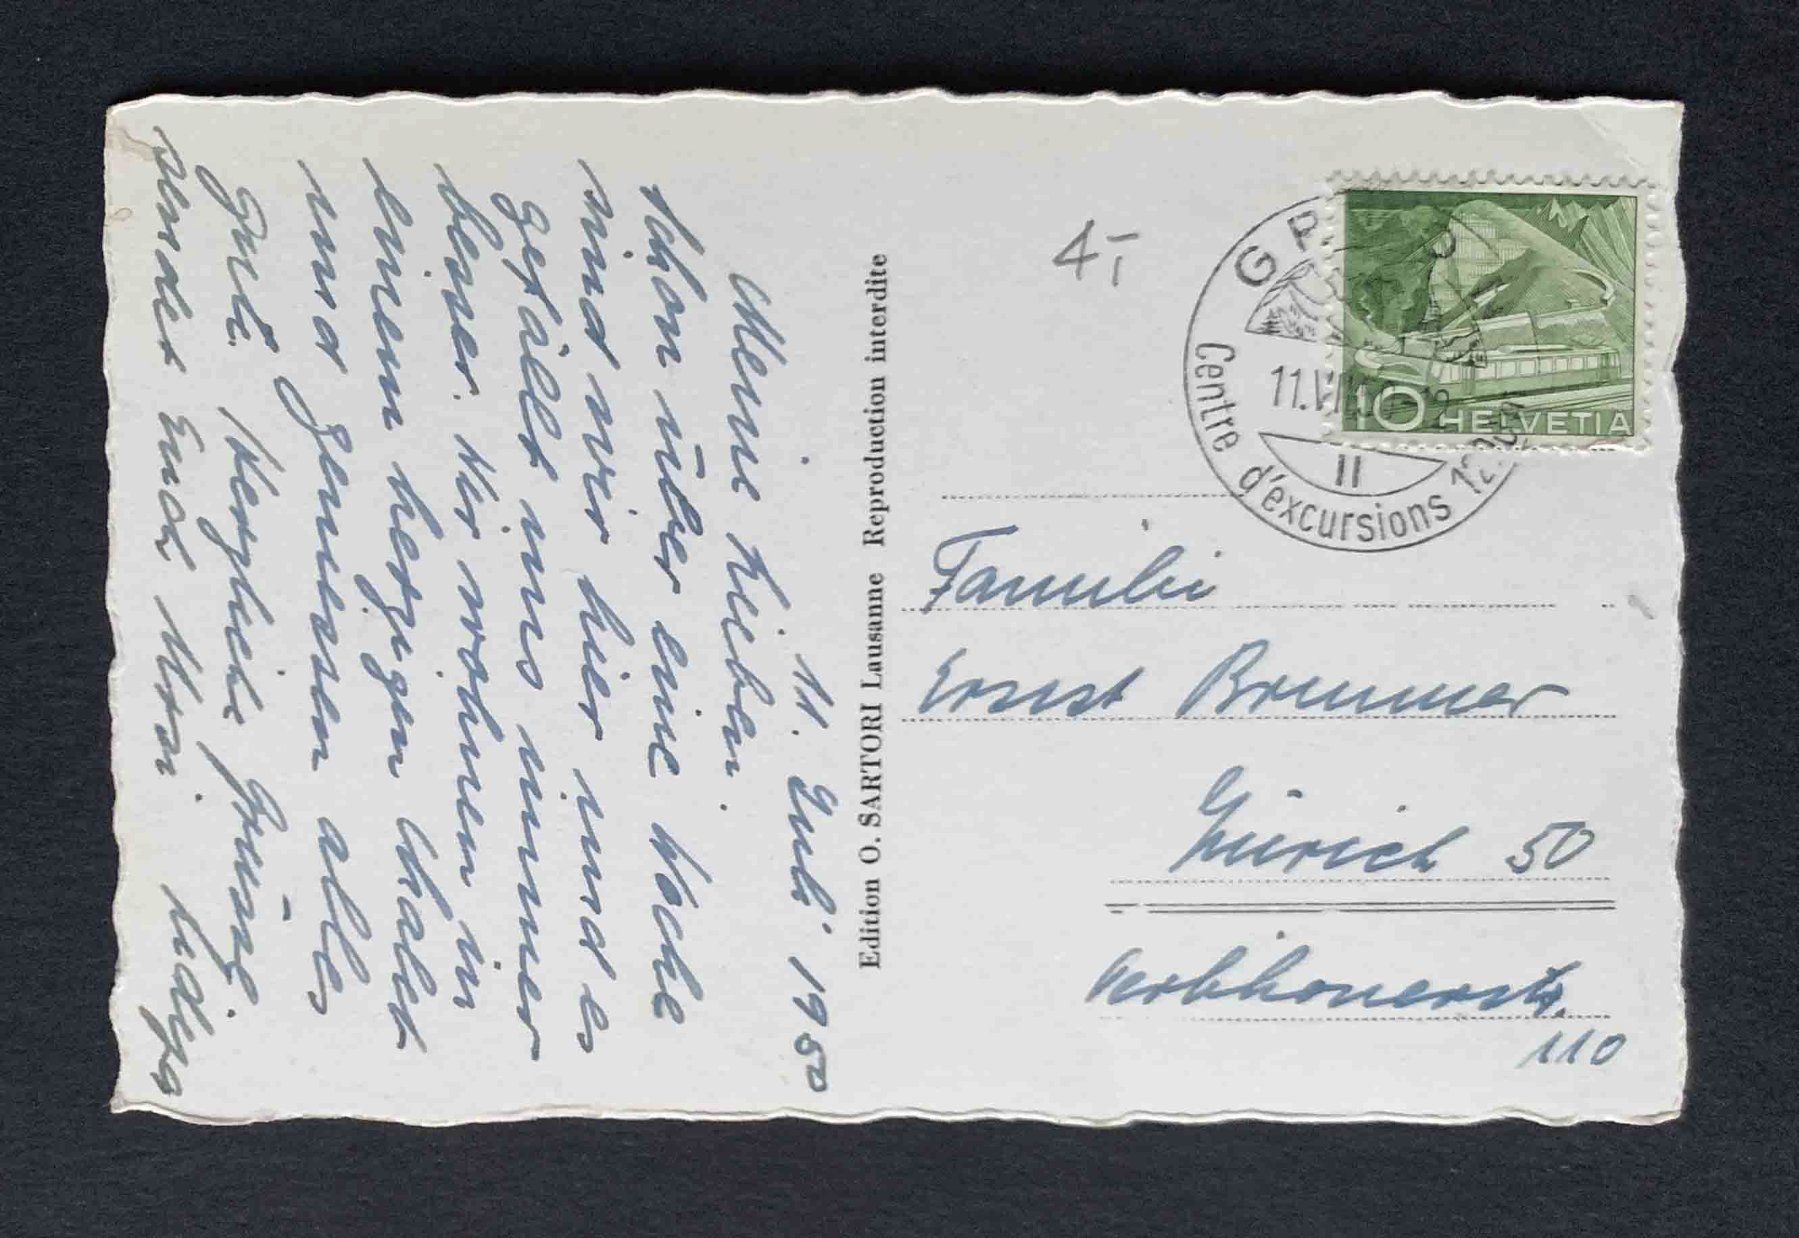 11. Juli 1950
Meine Lieben.
Schon über eine Woche
sind wir hier und es
gefällt uns immer
besser. Wir wohnen in
einem herzigen Chalet
und geniessen alles
Gute. Herzliche Grüsse
sendet Euch
Edition O. SARTORI Lausanne Reproduction interdite
4.-
G
11.VII.50
II
Centre d'excursions 12
10 HELVETIA
Familie
Ernst Brunner
Zürich 50
110